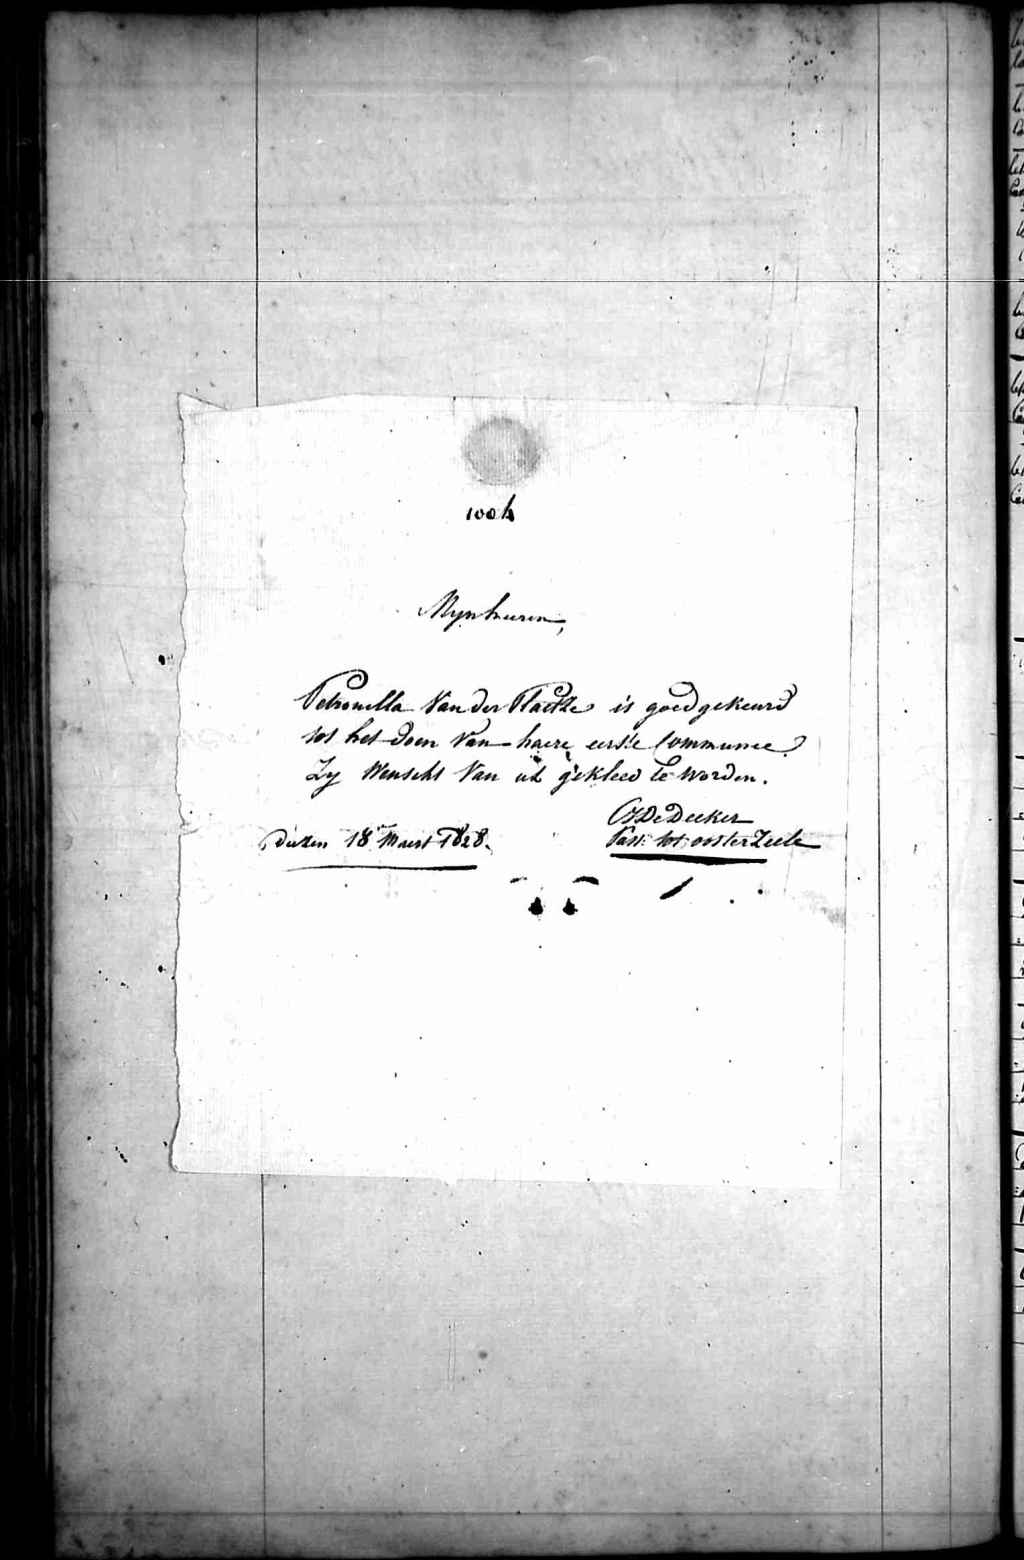 1004
Mynheeren,
Petronella Van der Plaetse is goedgekeurd
tot het doen Van haere eerste Communie.
Zy Wenscht Van uE gekleed te Worden.
De Decker
dezen 18 Maert 1828.
Past: tot oosterzeele